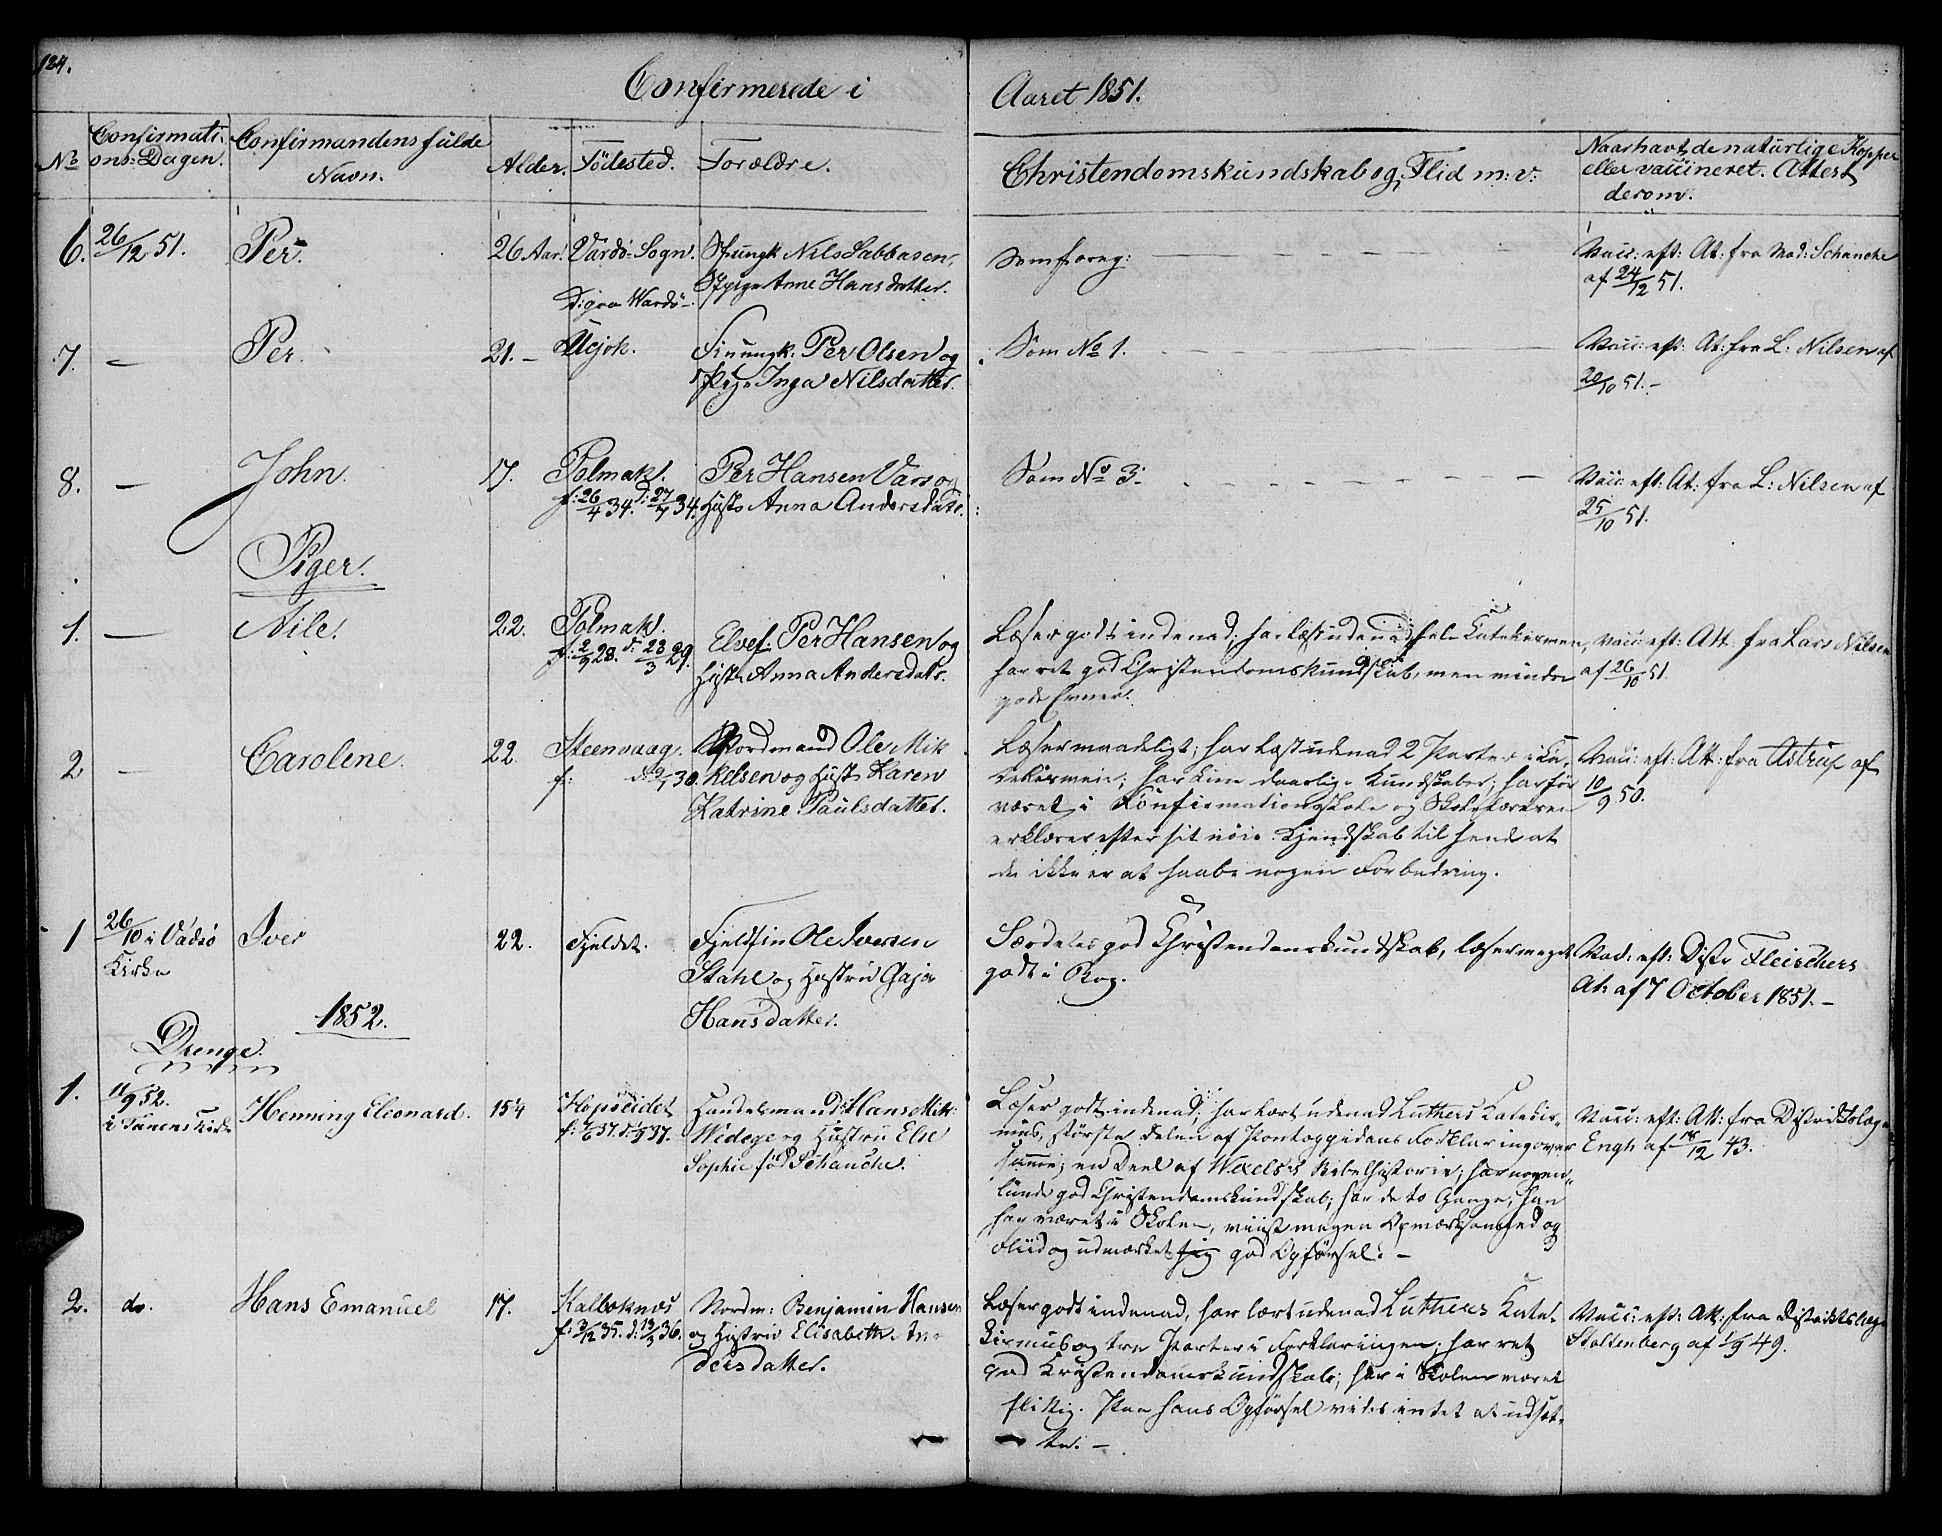 124.
Confirmerede i Aaret 1851.
No
Confirmati-
ons-Dagen.
Confirmandens fulde
Navn.
Alder.
Fødested.
Forældre.
Christendomskundskab og Flid m: v:
Naar havt de naturlige Kopper
eller vaccineret. Attest
derom.
6.
26/12 51.
Per.
26 Aar.
Vardø Sogn.
Ungk Nils Sabbasen,
Pige Anne Hansdatter.
Somforeg:
Vacc: eft: At: fra Mad: Schanche
af 24/12 51.
7.
Per.
21. –
Utsjok.
Finungk: Per Olsen og
Pige Inga Nilsdatter.
Som No 1.
Vacc: eft: At: fra L: Nilsen af
20/10 51. –
8.
John.
17.
Polmak.
f: 26/4 34. d: 27/7 34.
Per Hansen Vars og
Hust: Anna Andersdatr.
Som No 3.
Vacc: eft: At: fra L: Nilsen af
25/10 51.
Piger.
1.
Nile.
22.
Polmak.
f: 2/9 28. d: 23/3 29.
Elvef: Per Hansen og
Hust: Anna Andersdatr.
Læser godt indenad; har læst udenad hele Katekismen,
har ret god Christendomskundskab, men mindre
gode Evner.
Vacc: eft: Att: fra Lars Nilsen
af 26/10 51.
2
Carolene.
22.
Steenvaag.
f: d: 2/7 30.
Nordmand Ole Mik
kelsen og Hust: Karen
Katrine Paulsdatter.
Læser maadeligt; har læst udenad 2 Parter i Ka-
tekismen; har kun daarlige Kundskaber; har før
været i Konfirmationsskole og Skolelæreren
erklærer efter sit nøie Kjendskab til hende at
der ikke er at haabe nogen Forbedring.
Vacc: eft: Att: fra Astrup af
10/9 50.
1
26/10 i Vadsø
Kirke
Iver
22.
Fjeldet.
Fjeldfin Ole Iversen
Stahl og Hustru Gaja
Hansdatter.
Særdeles god Christendomskundskab, læser meget
godt i Bog.
Vac: eft: Distr Fleischers
At: af 7 October 1851. –
1852.
Drenge.
1.
11/9 52.
i Tanens Kirke
Henning Eleonard.
15¼
Hopseidet
Handelsmand: Hans Mik:
Wedege og Hustru Else
Sophie fød Schanche.
Læser godt indenad; har lært udenad Luthers Katekis-
mus, største Delen af Pontoppidans Forklaring over
samme; en Deel af Wexels's Bibelhistorie; har nogen-
lunde god Christendomskundskab; har de to Gange, han
har været i Skolen, viist megen Opmærksomhed og
Fliid og udmærket sig god Opførsel. –
Vacc: eft: Att: fra Distriktslæge
Engh af 18/12 43.
2.
do.
Hans Emanuel
17.
Kalbaknæs
f: 3/12 35. d: 13/3 36.
Nordm: Benjamin Hansen
og Hustru Elisabeth An-
dersdatter.
Læser godt indenad, har lært udenad Luthers Kate-
kismus og tre Parter i Forklaringen; har ret
god Kristendomskundskab; har i Skolen været
flittig. Paa hans Opførsel vides intet at udsæt-
te. –
Vacc: eft: Att: fra Distriktslæge
Stoltenberg af 1/9 49.